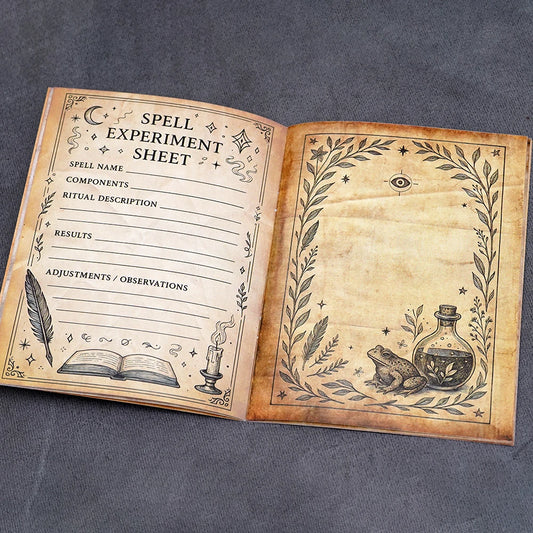 SPELL
EXPERIMENT
SHEET
SPELL NAME
COMPONENTS
RITUAL DESCRIPTION
RESULTS
ADJUSTMENTS / OBSERVATIONS